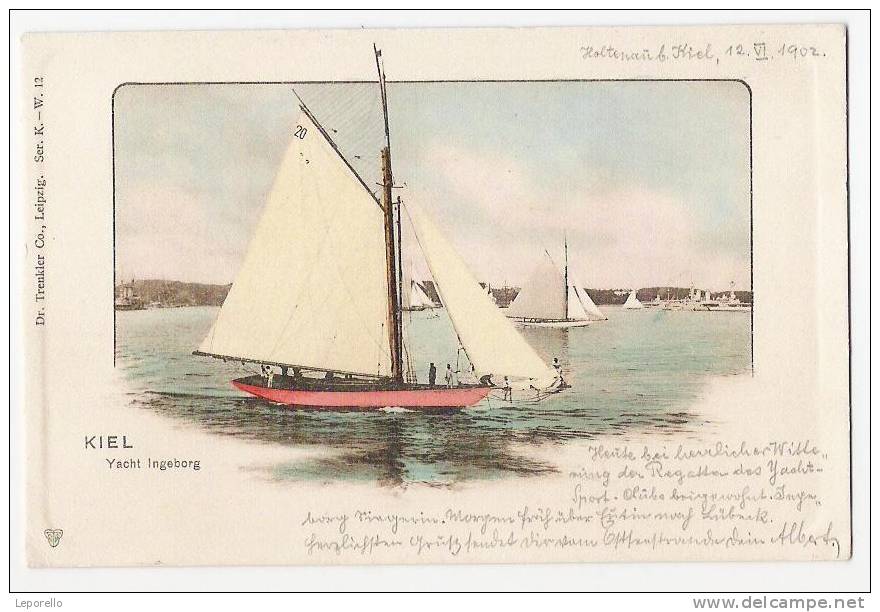 Holtenau b. Kiel, 12. VI. 1902.
Dr. Trenkler Co., Leipzig. Ser. K. – W. 12
20
KIEL
Yacht Ingeborg
Heute bei herrlicher Witte„
rung der Regatta des Yacht-
Sport-Clubs beigewohnt. Inge„
borg Siegerin. Morgen früh über Eutin nach Lübeck.
Herzlichsten Gruß sendet Dir vom Ostseestrande Dein Albert.
Leporello
http://www.delcampe.net